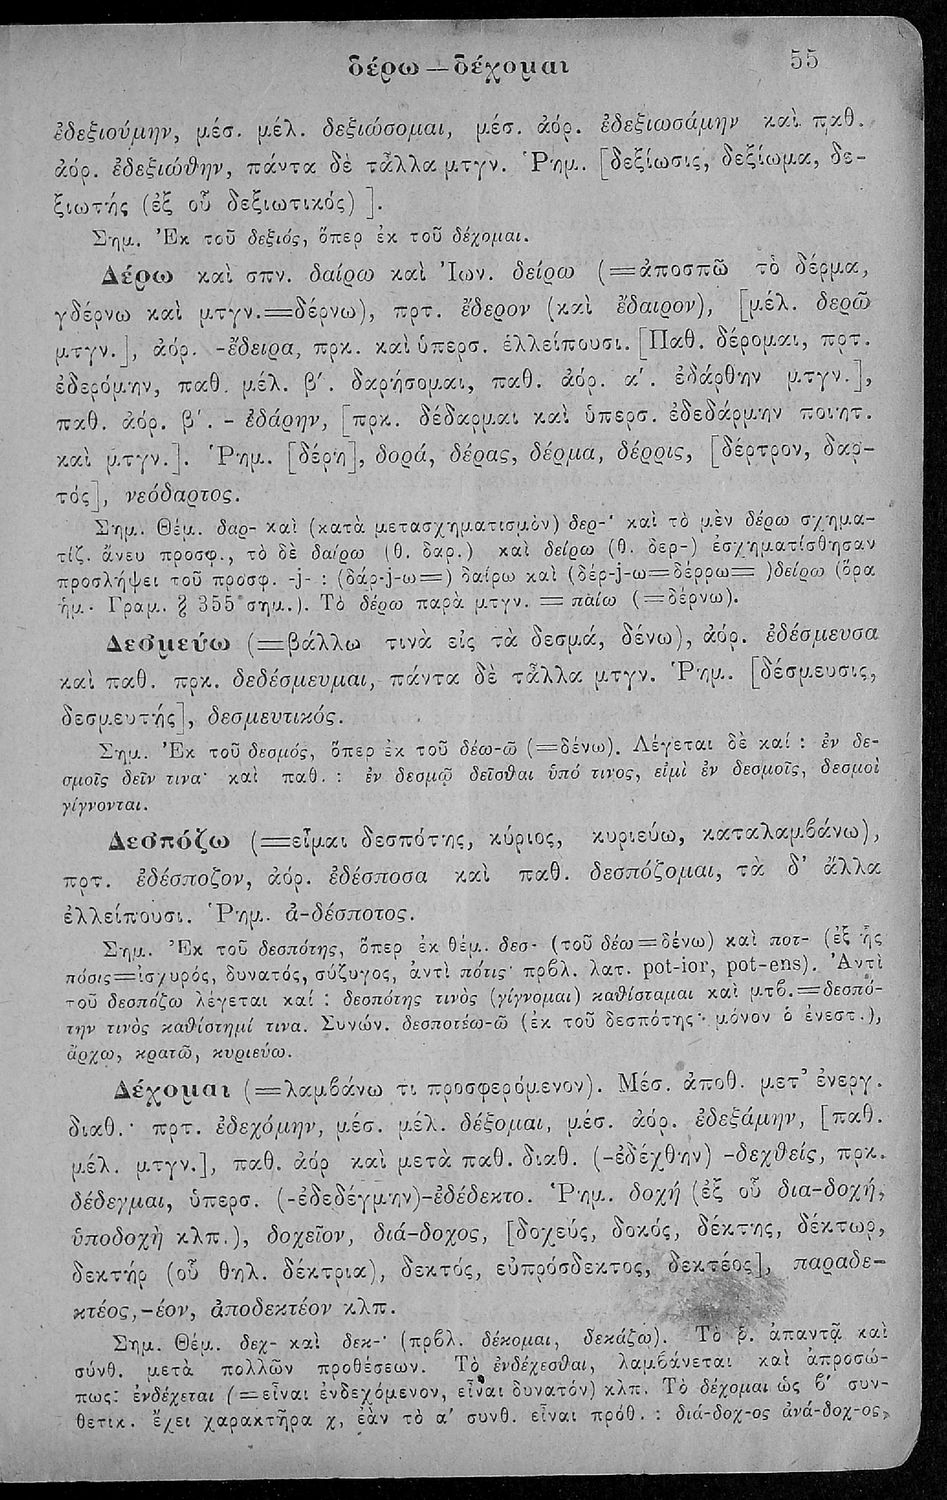 δέρω — δέχομαι 55
ἐδεξιούμην, μέσ. μέλ. δεξιώσομαι, μέσ. ἀόρ. ἐδεξιωσάμην καὶ παθ.
ἀόρ. ἐδεξιώθην, πάντα δὲ τἆλλα μτγν. Ῥημ. [δεξίωσις, δεξίωμα, δε-
ξιωτής (ἐξ οὗ δεξιωτικός) ].
Σημ. Ἐκ τοῦ δεξιός, ὅπερ ἐκ τοῦ δέχομαι.
Δέρω καὶ σπν. δαίρω καὶ Ἰων. δείρω (=ἀποσπῶ τὸ δέρμα,
γδέρνω καὶ μτγν.=δέρνω), πρτ. ἔδερον (καὶ ἔδαιρον), [μέλ. δερῶ
μτγν.], ἀόρ. -ἔδειρα, πρκ. καὶ ὑπερσ. ἐλλείπουσι. [Παθ. δέρομαι, πρτ.
ἐδερόμην, παθ. μέλ. β΄. δαρήσομαι, παθ. ἀόρ. α΄. ἐδάρθην μτγν.],
παθ. ἀόρ. β΄. - ἐδάρην, [πρκ. δέδαρμαι καὶ ὑπερσ. ἐδεδάρμην ποιητ.
καὶ μτγν.]. Ῥημ. [δέρη], δορά, δέρας, δέρμα, δέρρις, [δέρτρον, δαρ-
τός], νεόδαρτος.
Σημ. Θέμ. δαρ- καὶ (κατὰ μετασχηματισμὸν) δερ-· καὶ τὸ μὲν δέρω σχημα-
τίζ. ἄνευ προσφ., τὸ δὲ δαίρω (θ. δαρ.) καὶ δείρω (θ. δερ-) ἐσχηματίσθησαν
προσλήψει τοῦ προσφ. -j- : (δάρ-j-ω=) δαίρω καὶ (δέρ-j-ω=δέρρω= )δείρω (ὅρα
ἡμ. Γραμ. § 355 σημ.). Τὸ δέρω παρὰ μτγν. = παίω (=δέρνω).
Δεσμεύω (=βάλλω τινὰ εἰς τὰ δεσμά, δένω), ἀόρ. ἐδέσμευσα
καὶ παθ. πρκ. δεδέσμευμαι, πάντα δὲ τἆλλα μτγν. Ῥημ. [δέσμευσις,
δεσμευτής], δεσμευτικός.
Σημ. Ἐκ τοῦ δεσμός, ὅπερ ἐκ τοῦ δέω-ῶ (=δένω). Λέγεται δὲ καί : ἐν δε-
σμοῖς δεῖν τινα· καὶ παθ. : ἐν δεσμῷ δεῖσθαι ὑπό τινος, εἰμὶ ἐν δεσμοῖς, δεσμοὶ
γίγνονται.
Δεσπόζω (=εἶμαι δεσπότης, κύριος, κυριεύω, καταλαμβάνω),
πρτ. ἐδέσποζον, ἀόρ. ἐδέσποσα καὶ παθ. δεσπόζομαι, τὰ δ' ἄλλα
ἐλλείπουσι. Ῥημ. ἀ-δέσποτος.
Σημ. Ἐκ τοῦ δεσπότης, ὅπερ ἐκ θέμ. δεσ- (τοῦ δέω=δένω) καὶ ποτ- (ἐξ ἧς
πόσις=ἰσχυρός, δυνατός, σύζυγος, ἀντὶ πότις· πρβλ. λατ. pot-ior, pot-ens). Ἀντὶ
τοῦ δεσπόζω λέγεται καί : δεσπότης τινὸς (γίγνομαι) καθίσταμαι καὶ μτβ.=δεσπό-
την τινὸς καθίστημί τινα. Συνών. δεσποτέω-ῶ (ἐκ τοῦ δεσπότης· μόνον ὁ ἐνεστ.),
ἄρχω, κρατῶ, κυριεύω.
Δέχομαι (=λαμβάνω τι προσφερόμενον). Μέσ. ἀποθ. μετ' ἐνεργ.
διαθ.· πρτ. ἐδεχόμην, μέσ. μέλ. δέξομαι, μέσ. ἀόρ. ἐδεξάμην, [παθ.
μέλ. μτγν.], παθ. ἀόρ καὶ μετὰ παθ. διαθ. (-ἐδέχθην) -δεχθείς, πρκ.
δέδεγμαι, ὑπερσ. (-ἐδεδέγμην)-ἐδέδεκτο. Ῥημ. δοχή (ἐξ οὗ δια-δοχή,
ὑποδοχὴ κλπ.), δοχεῖον, διά-δοχος, [δοχεύς, δοκός, δέκτης, δέκτωρ,
δεκτήρ (οὗ θηλ. δέκτρια), δεκτός, εὐπρόσδεκτος, δεκτέος], παραδε-
κτέος,-έον, ἀποδεκτέον κλπ.
Σημ. Θέμ. δεχ- καὶ δεκ-· (πρβλ. δέκομαι, δεκάζω). Τὸ ῥ. ἀπαντᾷ καὶ
σύνθ. μετὰ πολλῶν προθέσεων. Τὸ ἐνδέχεσθαι, λαμβάνεται καὶ ἀπροσώ-
πως: ἐνδέχεται (=εἶναι ἐνδεχόμενον, εἶναι δυνατόν) κλπ. Τὸ δέχομαι ὡς β΄ συν-
θετικ. ἔχει χαρακτῆρα χ, ἐὰν τὸ α΄ συνθ. εἶναι πρόθ. : διά-δοχ-ος ἀνά-δοχ-ος,